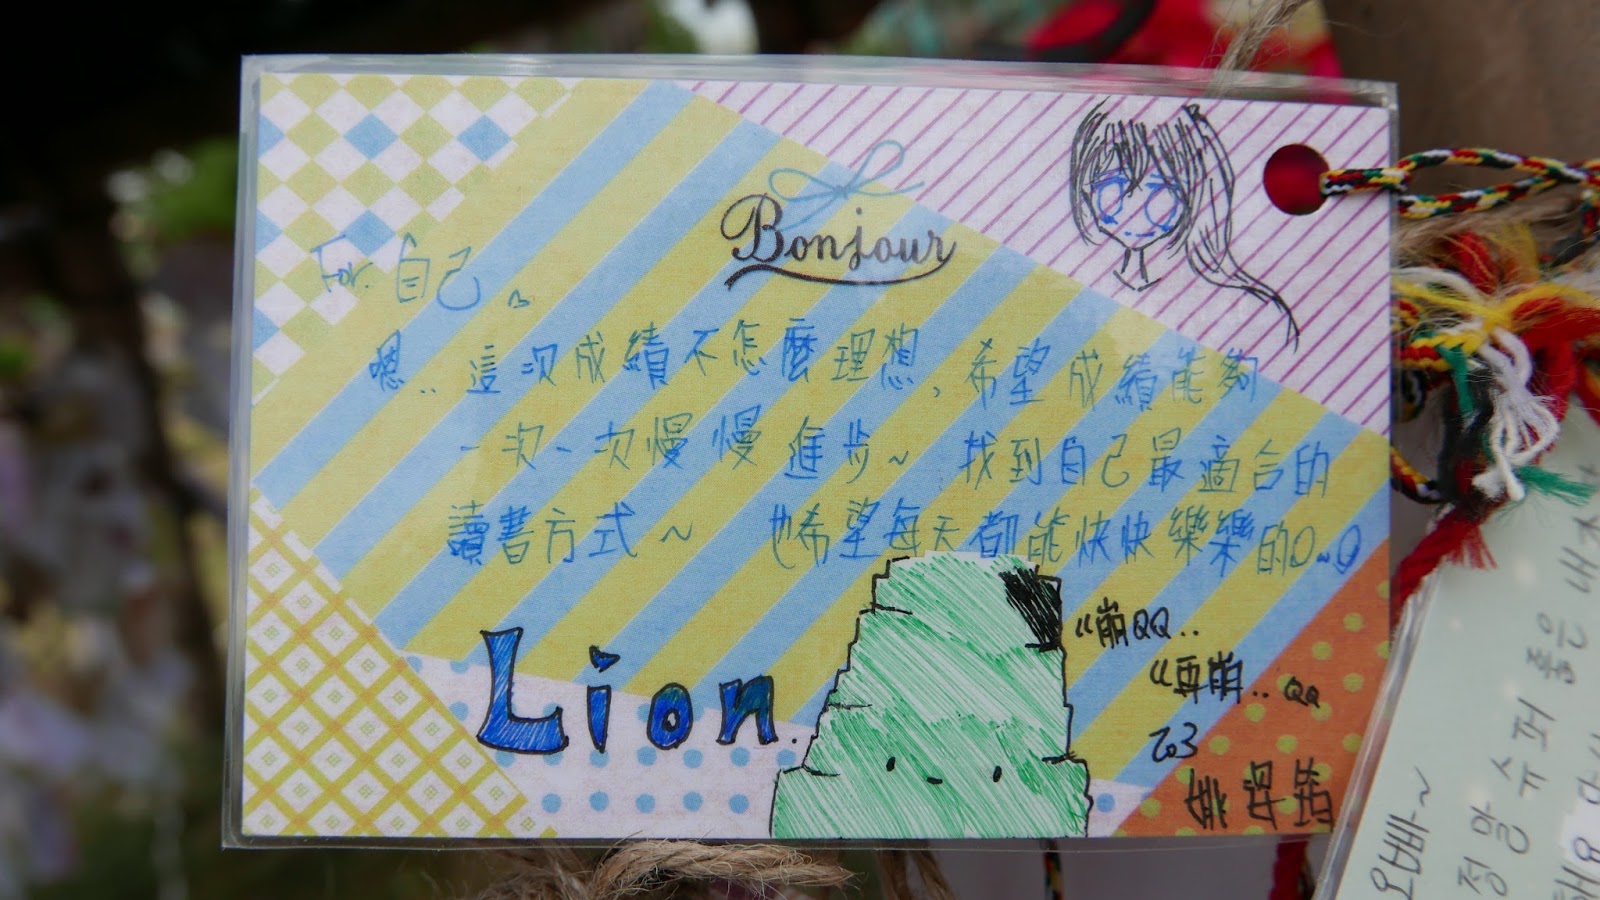 Bonjour
For. 自己。
嗯.. 這次成績不怎麼理想,希望成績能夠
一次一次慢慢進步~ 找到自己最適合的
讀書方式~ 也希望每天都能快快樂樂的O~O
Lion.
"崩QQ..
"再崩..QQ
703
오빠~
정말 슈퍼
좋은 내